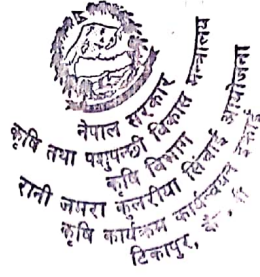 नेपाल सरकार
कृषि तथा पशुपन्छी विकास मन्त्रालय
कृषि विभाग
रानी जमरा कुलरीया सिंचाई आयोजना
कृषि कार्यक्रम कार्यन्वयन इकाई
टिकापुर,